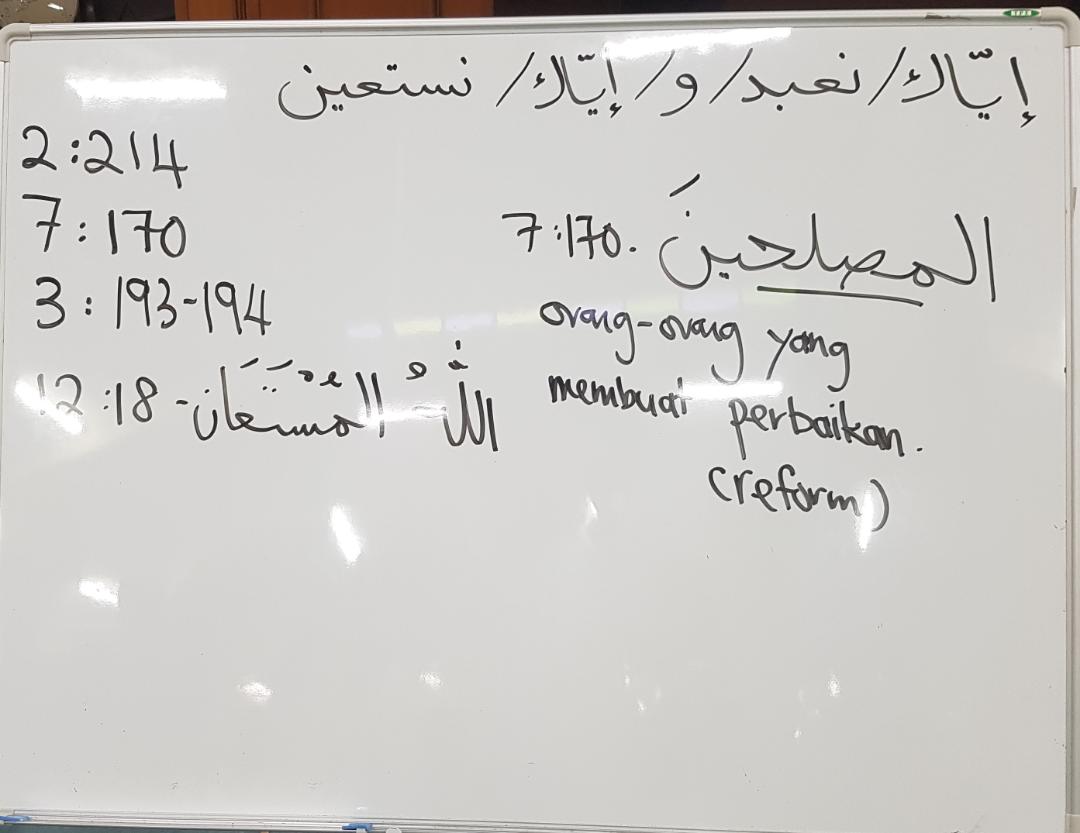 إيّاك/نعبد/و/إيّاك/نستعين
2:214
7:170
3:193-194
12:18 - اللهُ المُسْتَعَان
7:170. المصلحينَ
orang-orang yang
membuat perbaikan.
(reform)